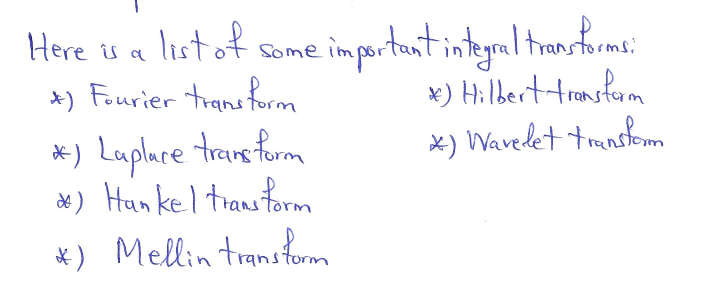 Here is a list of some important integral transforms:
*) Fourier transform
*) Laplace transform
*) Hankel transform
*) Mellin transform
*) Hilbert transform
*) Wavelet transform